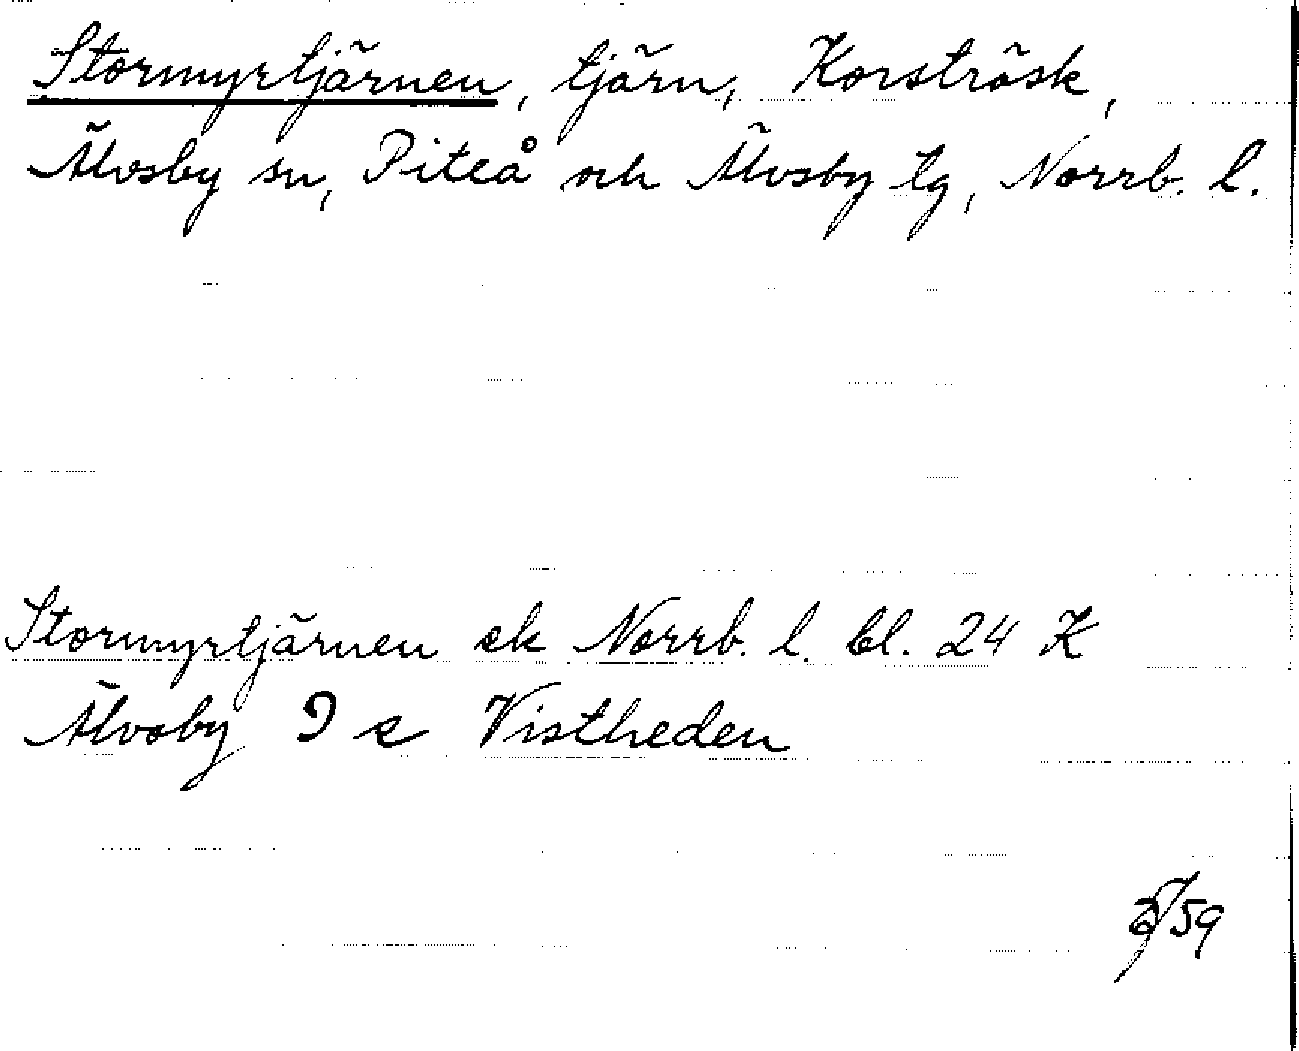 Stormyrtjärnen, tjärn, Korsträsk,
Älvsby sn, Piteå och Älvsby tg, Norrb. l.
Stormyrtjärnen ek Norrb. l. bl. 24 K
Älvsby 9 e Vistheden
/59